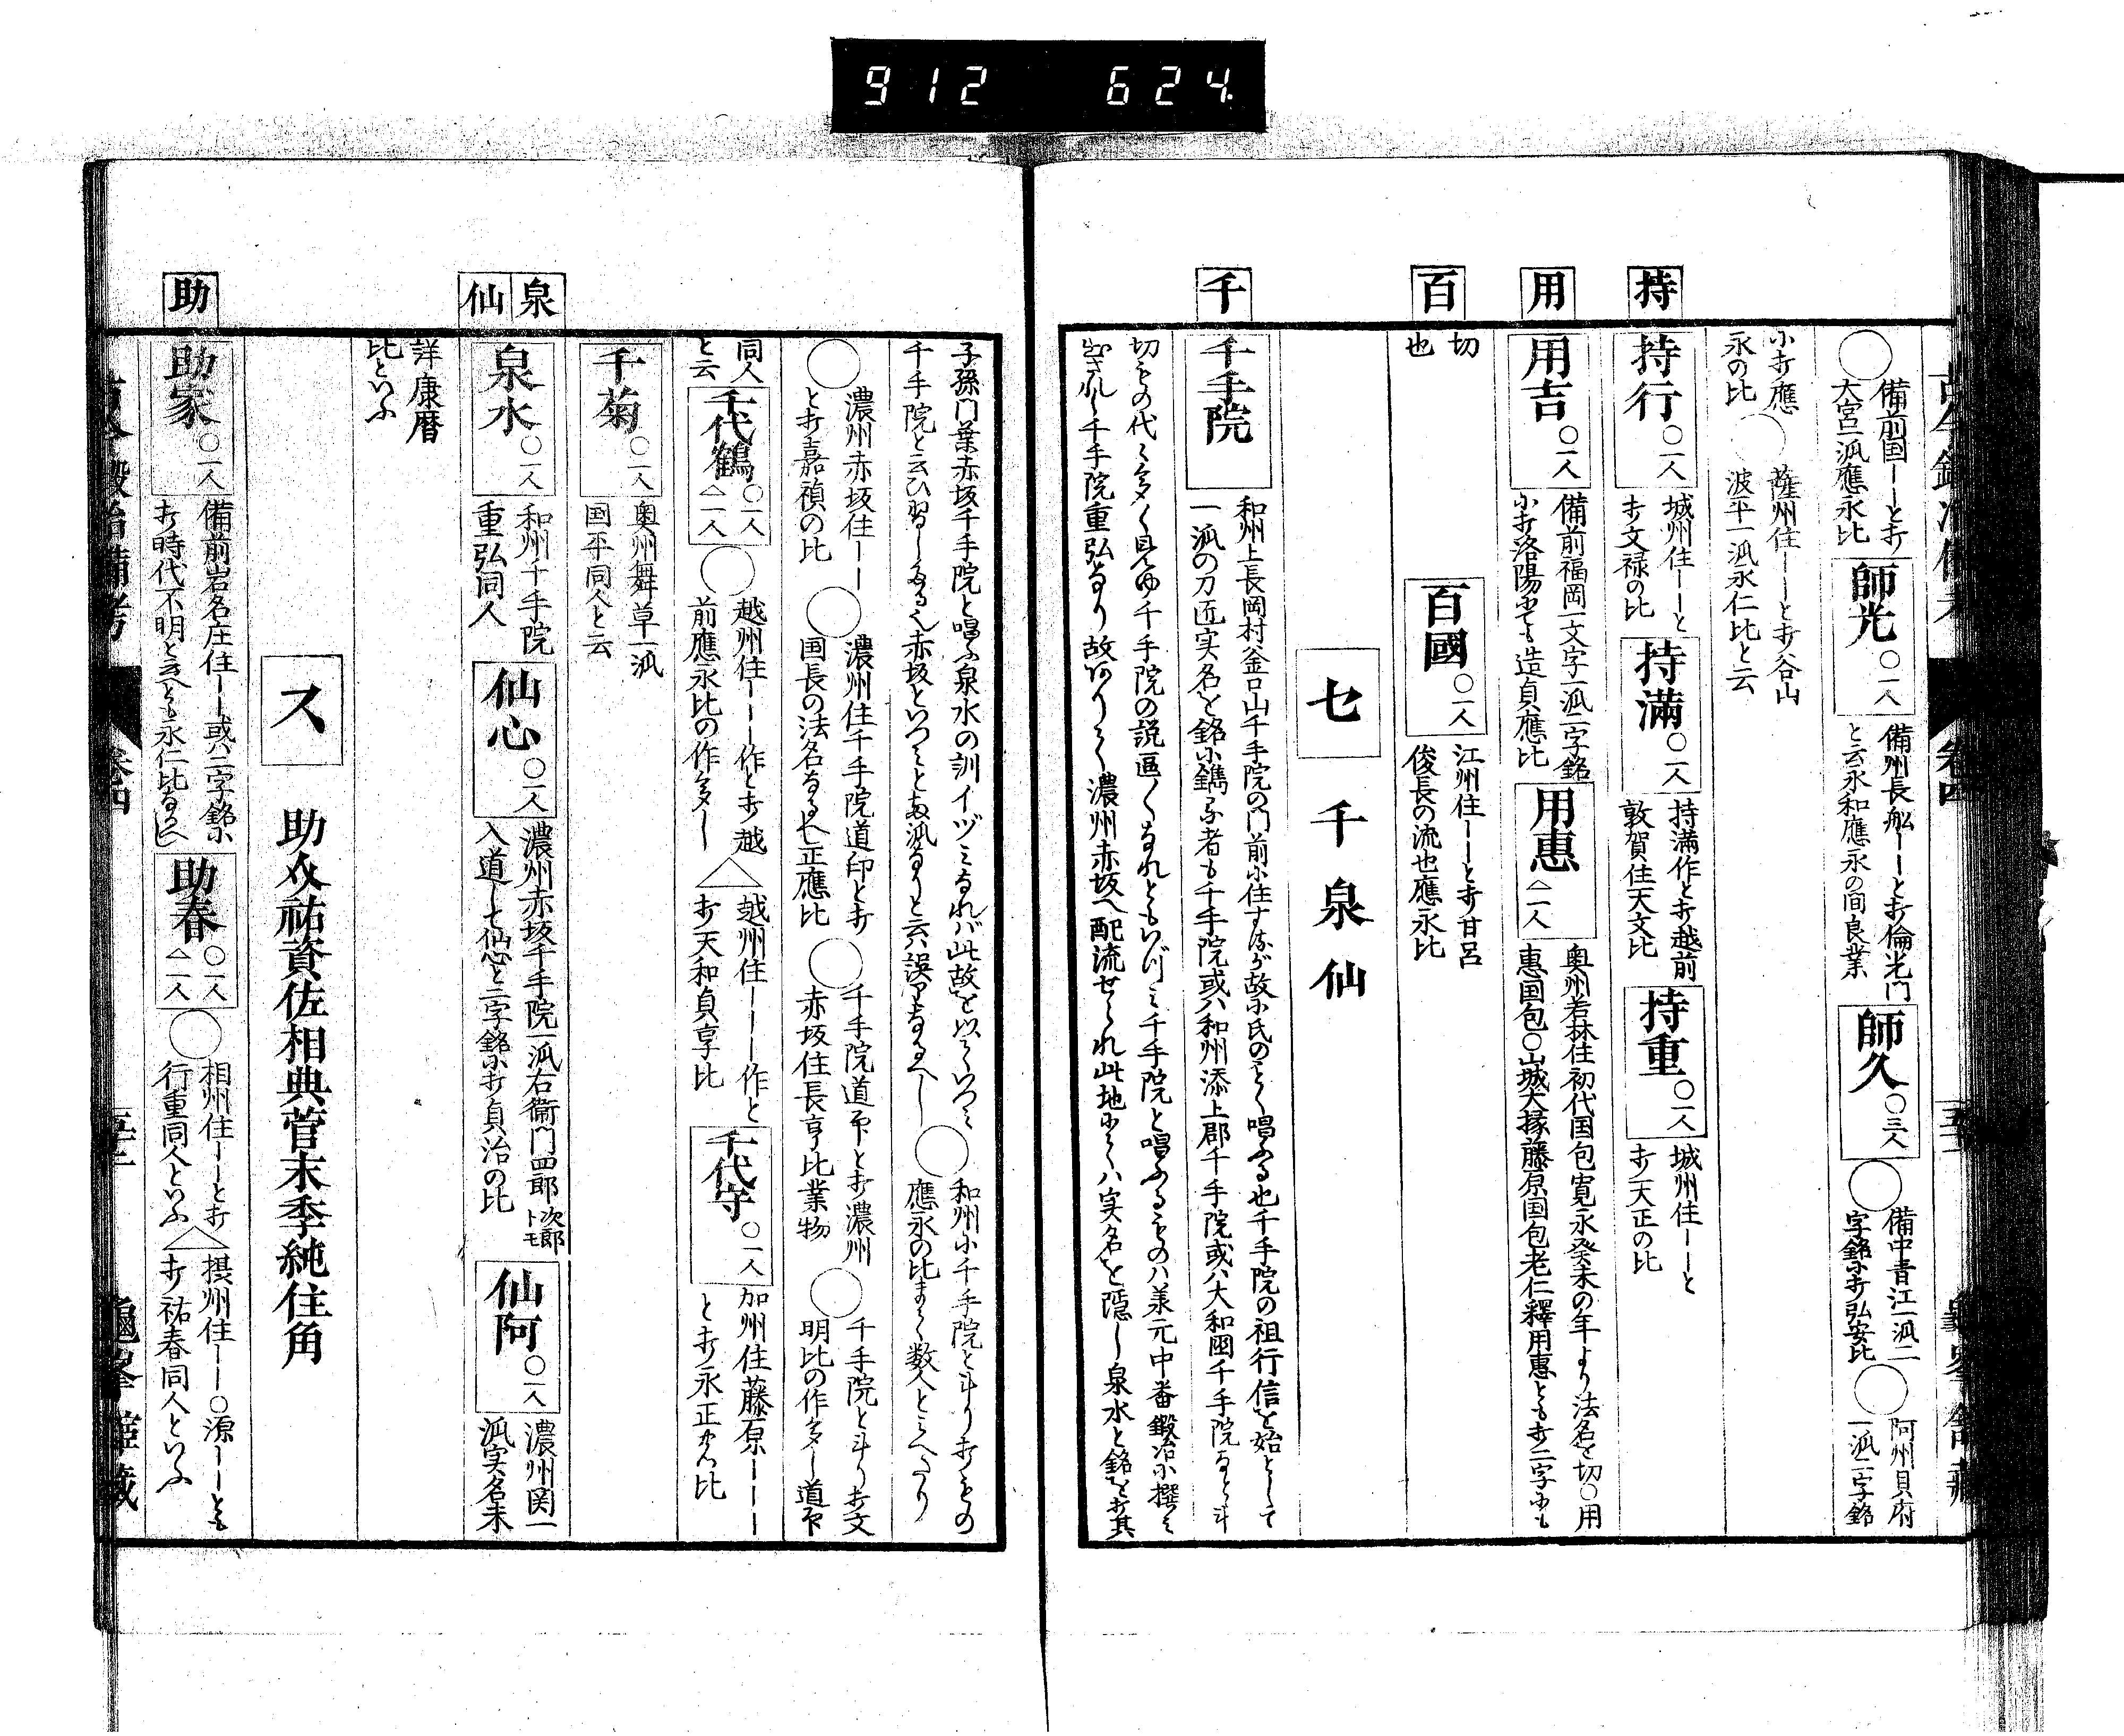 912 624
持
用
百
千
○備前国――と打
大宮一派應永比
師光○一人
備州長船――と打倫光門
と云永和應永の間良業
師久○三人
○備中青江一派二
字銘ニ打弘安比
○阿州貝府
一派二字銘
ニ打應
永の比
○薩州住――と打谷山
波平一派永仁比と云
持行○一人
城州住――と
打文禄の比
持滿○一人
持満作と打越前
敦賀住天文比
持重○一人
城州住――と
打天正の比
用吉○一人
備前福岡一文字一派二字銘
ニ打洛陽にても造貞應比
用惠△一人
奥州若林住初代国包寛永癸未の年より法名を切○用
惠国包○山城大掾藤原国包老仁釋用惠とも打二字にも
切
也
百國○一人
江州住――と打甘呂
俊長の流也應永比
セ 千泉仙
千手院
和州上長岡村釜口山千手院の門前に住するが故に氏のごとく唱ふる也千手院の祖行信を始として
一派の刀匠実名を銘に鐫る者も千手院或ハ和州添上郡千手院或ハ大和國千手院などゝ斗
切ものゝ代々多く見ゆ千手院の説区々なれともいづミ千手院と唱ふるものハ兼元中番鍛冶に撰ミ
出されし千手院重弘なり故ありて濃州赤坂へ配流せられ此地にてハ実名を隠し泉水と銘を打其
泉
仙
助
子孫門葉赤坂千手院と唱ふ泉水の訓イヅミなれバ此故を以ていつミ
千手院と云ひ習しなるべし赤坂といつミと両派なりと云ハ誤りなるべし
○和州に千手院と斗り打もの
應永の比まて数人とミへたり
○濃州赤坂住――
と打嘉禎の比
○濃州住千手院道印と打
国長の法名なるべし正應比
○千手院道印と打濃州
赤坂住長享比業物
○千手院と斗り打文
明比の作多し道印
同人
と云
千代鶴○一人△一人
○越州住――作と打越
前應永比の作多し
△越州住――作と
打天和貞享比
千代守○一人
加州住藤原――
と打永正の比
千菊○一人
奥州舞草一派
国平同人と云
泉水○一人
和州千手院
重弘同人
仙心○一人
濃州赤坂千手院一派右衛門四郎次郎トモ
入道して仙心と二字銘ニ打貞治の比
仙阿○一人
濃州関一
派実名未
詳康暦
比といふ
ス 助及祐資佐相典菅末季純住角
助家○一人
備前岩名庄住――或ハ二字銘ニ
打時代不明と云へとも永仁比なるべし
助春○一人△一人
○相州住――と打
行重同人といふ
△摂州住――○源――とも
打祐春同人といふ